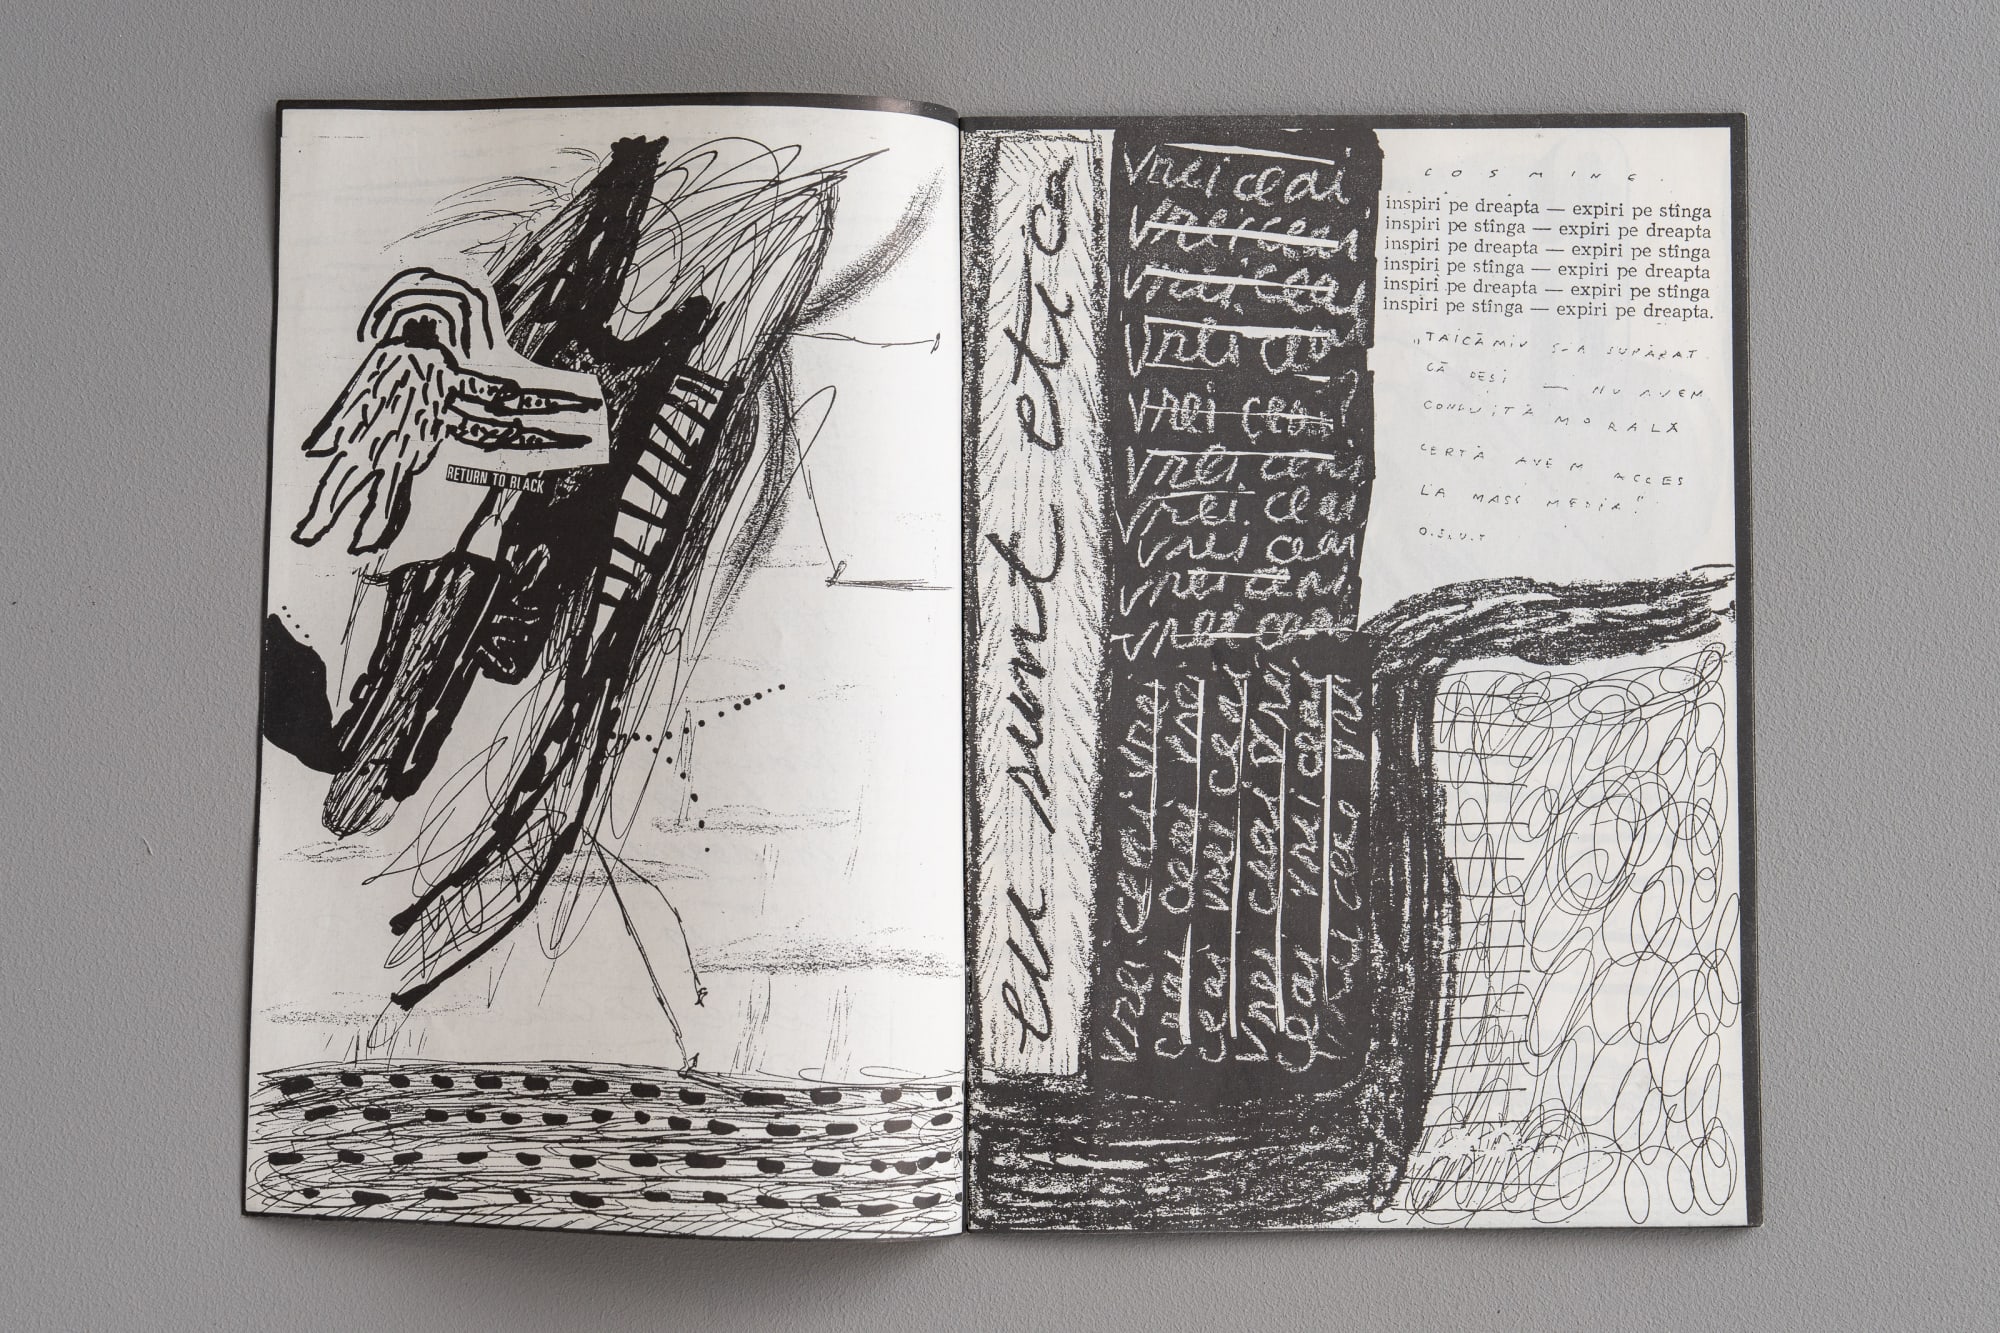 RETURN TO BLACK
eu sunt etica
vrei ceai
vrei ceai
vrei ceai
vrei ceai
vrei ceai
vrei ceai
vrei ceai
vrei ceai
vrei ceai
vrei ceai
vrei ceai vrei
vrei ceai vrei
ceai vrei ceai
vrei ceai vrei
ceai vrei ceai
ceai vrei
COSMINE.
inspiri pe dreapta — expiri pe stînga
inspiri pe stînga — expiri pe dreapta
inspiri pe dreapta — expiri pe stînga
inspiri pe stînga — expiri pe dreapta
inspiri pe dreapta — expiri pe stînga
inspiri pe stînga — expiri pe dreapta.
„TAICĂMIU S-A SUPĂRAT
CĂ DEȘI — NU AVEM
CONDUITĂ MORALĂ
CERTĂ AVEM ACCES
LA MASS MEDIA!"